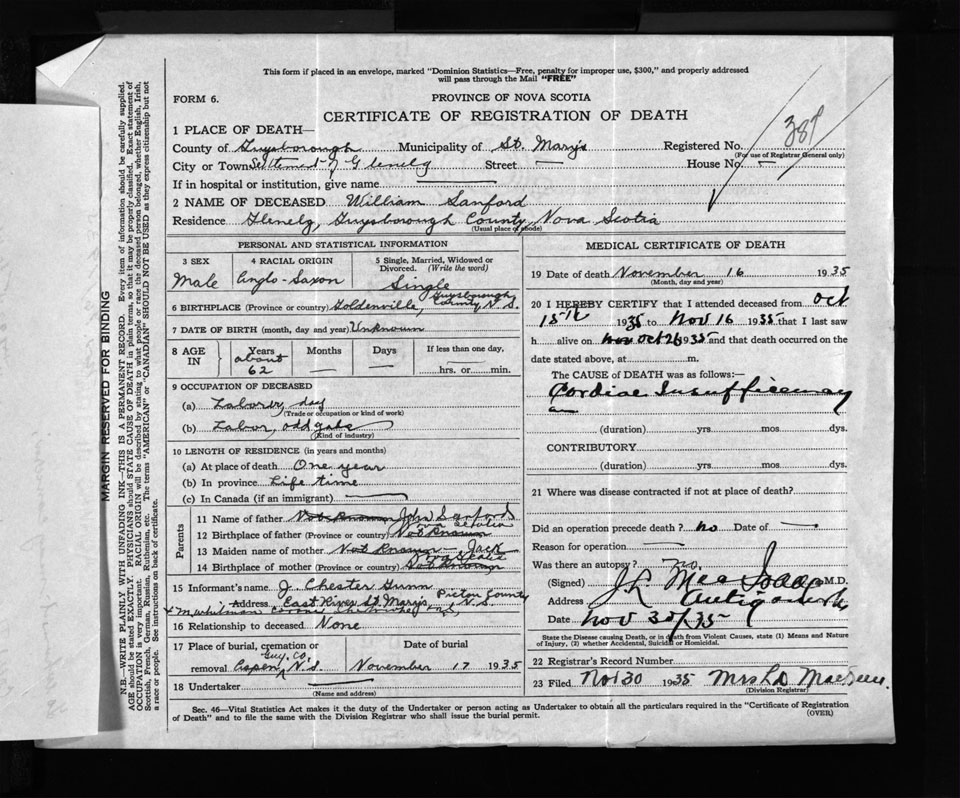 This form if placed in an envelope, marked "Dominion Statistics—Free, penalty for improper use, $300," and properly addressed
will pass through the Mail "FREE"
FORM 6.
PROVINCE OF NOVA SCOTIA
CERTIFICATE OF REGISTRATION OF DEATH
1 PLACE OF DEATH—
County of Guysborough Municipality of St. Mary's Registered No.
(For use of Registrar General only)
City or Town Settlement of Glenelg Street — House No. —
If in hospital or institution, give name —
2 NAME OF DECEASED William Sanford
Residence Glenelg, Guysborough County, Nova Scotia
(Usual place of abode)
PERSONAL AND STATISTICAL INFORMATION
3 SEX
Male
4 RACIAL ORIGIN
Anglo-Saxon
5 Single, Married, Widowed or Divorced. (Write the word)
Single
6 BIRTHPLACE (Province or country) Goldenville, Guysborough County, N.S.
7 DATE OF BIRTH (month, day and year) Unknown
8 AGE IN
Years about 62
Months —
Days —
If less than one day,
hrs. or min.
9 OCCUPATION OF DECEASED
(a) Laborer, day
(Trade or occupation or kind of work)
(b) Labor, odd jobs
(Kind of industry)
10 LENGTH OF RESIDENCE (in years and months)
(a) At place of death One year
(b) In province Life time
(c) In Canada (if an immigrant) —
Parents
11 Name of father Not Known John Sanford
12 Birthplace of father (Province or country) Not Known
13 Maiden name of mother Not Known — Jack
14 Birthplace of mother (Province or country) Not Known Nova Scotia
15 Informant's name J. Chester Gunn
Address East River St. Mary's, Pictou County N.S.
16 Relationship to deceased None
17 Place of burial, cremation or removal Aspen, Guy. Co. N.S.
Date of burial
November 17 1935
18 Undertaker —
(Name and address)
MEDICAL CERTIFICATE OF DEATH
19 Date of death November 16 1935
(Month, day and year)
20 I HEREBY CERTIFY that I attended deceased from Oct
15th 1935 to Nov 16 1935 that I last saw
h alive on Nov Oct 26 1935 and that death occurred on the
date stated above, at m.
The CAUSE of DEATH was as follows:—
Cardiac Insufficiency
(duration) yrs. mos. dys.
CONTRIBUTORY
(duration) yrs. mos. dys.
21 Where was disease contracted if not at place of death?
Did an operation precede death? no Date of —
Reason for operation —
Was there an autopsy? No.
(Signed) J.L. MacIsaac M.D.
Address Antigonish
Date Nov 30/35
State the Disease causing Death, or in death from Violent Causes, state (1) Means and Nature
of Injury, (2) whether Accidental, Suicidal or Homicidal.
22 Registrar's Record Number
23 Filed Nov 30 1935 Mrs L D
(Division Registrar)
Sec. 46—Vital Statistics Act makes it the duty of the Undertaker or person acting as Undertaker to obtain all the particulars required in the "Certificate of Registration
of Death" and to file the same with the Division Registrar who shall issue the burial permit.
(OVER)
MARGIN RESERVED FOR BINDING
N.B.—WRITE PLAINLY WITH UNFADING INK—THIS IS A PERMANENT RECORD. Every item of information should be carefully supplied.
AGE should be stated EXACTLY. PHYSICIANS should STATE CAUSE OF DEATH in plain terms, so that it may be properly classified. Exact statement of
OCCUPATION is very important. RACIAL ORIGIN will be described by stating to what people or race the deceased person belonged, whether English, Irish,
Scottish, French, German, Russian, Ruthenian, etc. The terms "AMERICAN" or "CANADIAN" SHOULD NOT BE USED as they express citizenship but not
a race or people. See instructions on back of certificate.